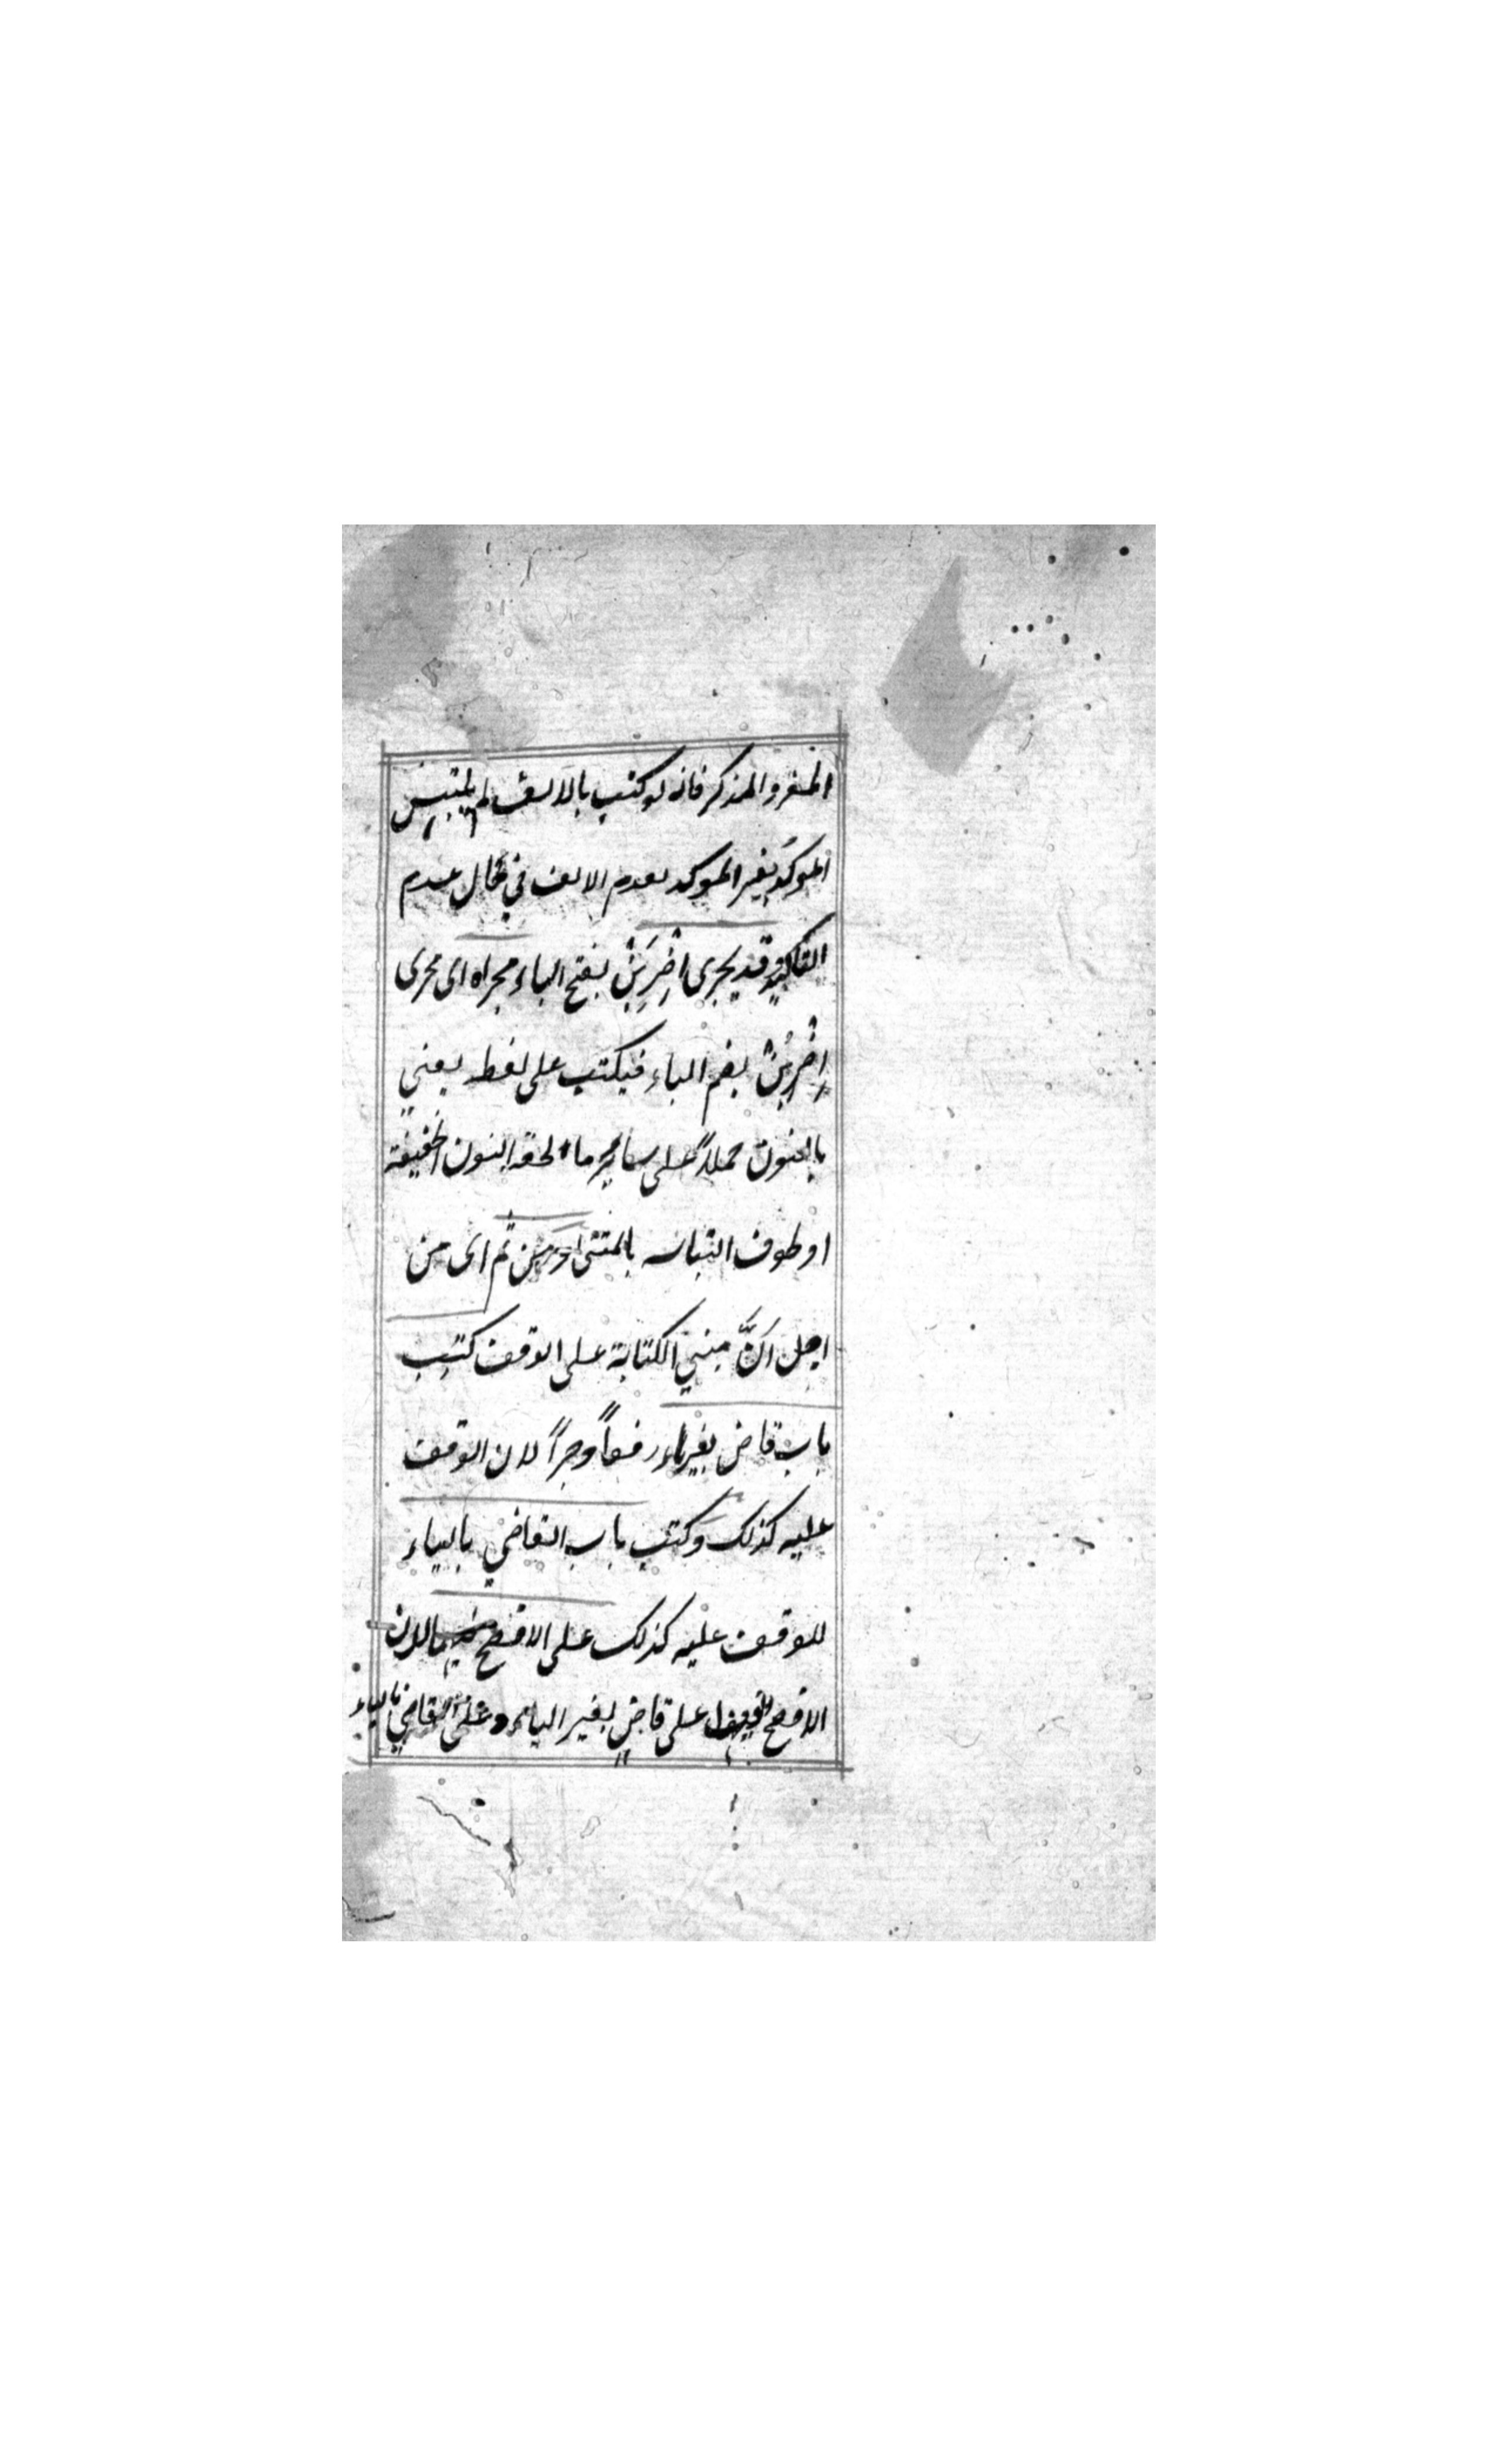 المفرد المذكر فانه لو كتب بالالف لم يلتبس
الموكد بغير الموكد لعدم الالف في حال عدم
التاكيد وقد يجرى اضْرِبَنْ بفتح الباء مجراه اى مجرى
اِضْرِبُنْ بضم الباء فيكتب على لفظه يعني
بالنون حملاً على ساير ما لحقه النون الخفيفة
او لخوف التباسه بالمثنى ومن ثم اى من
اجل انَّ مبني الكتابة على الوقف كتب
باب قاض بغير ياء رفعاً وجراً لان الوقف
عليه كذلك وكتب باب القاضي بالياء
للوقف عليه كذلك على الافصح فيهما لان
الافصح الوقف على قاضٍ بغير الياء وعلى القاضي بالياء